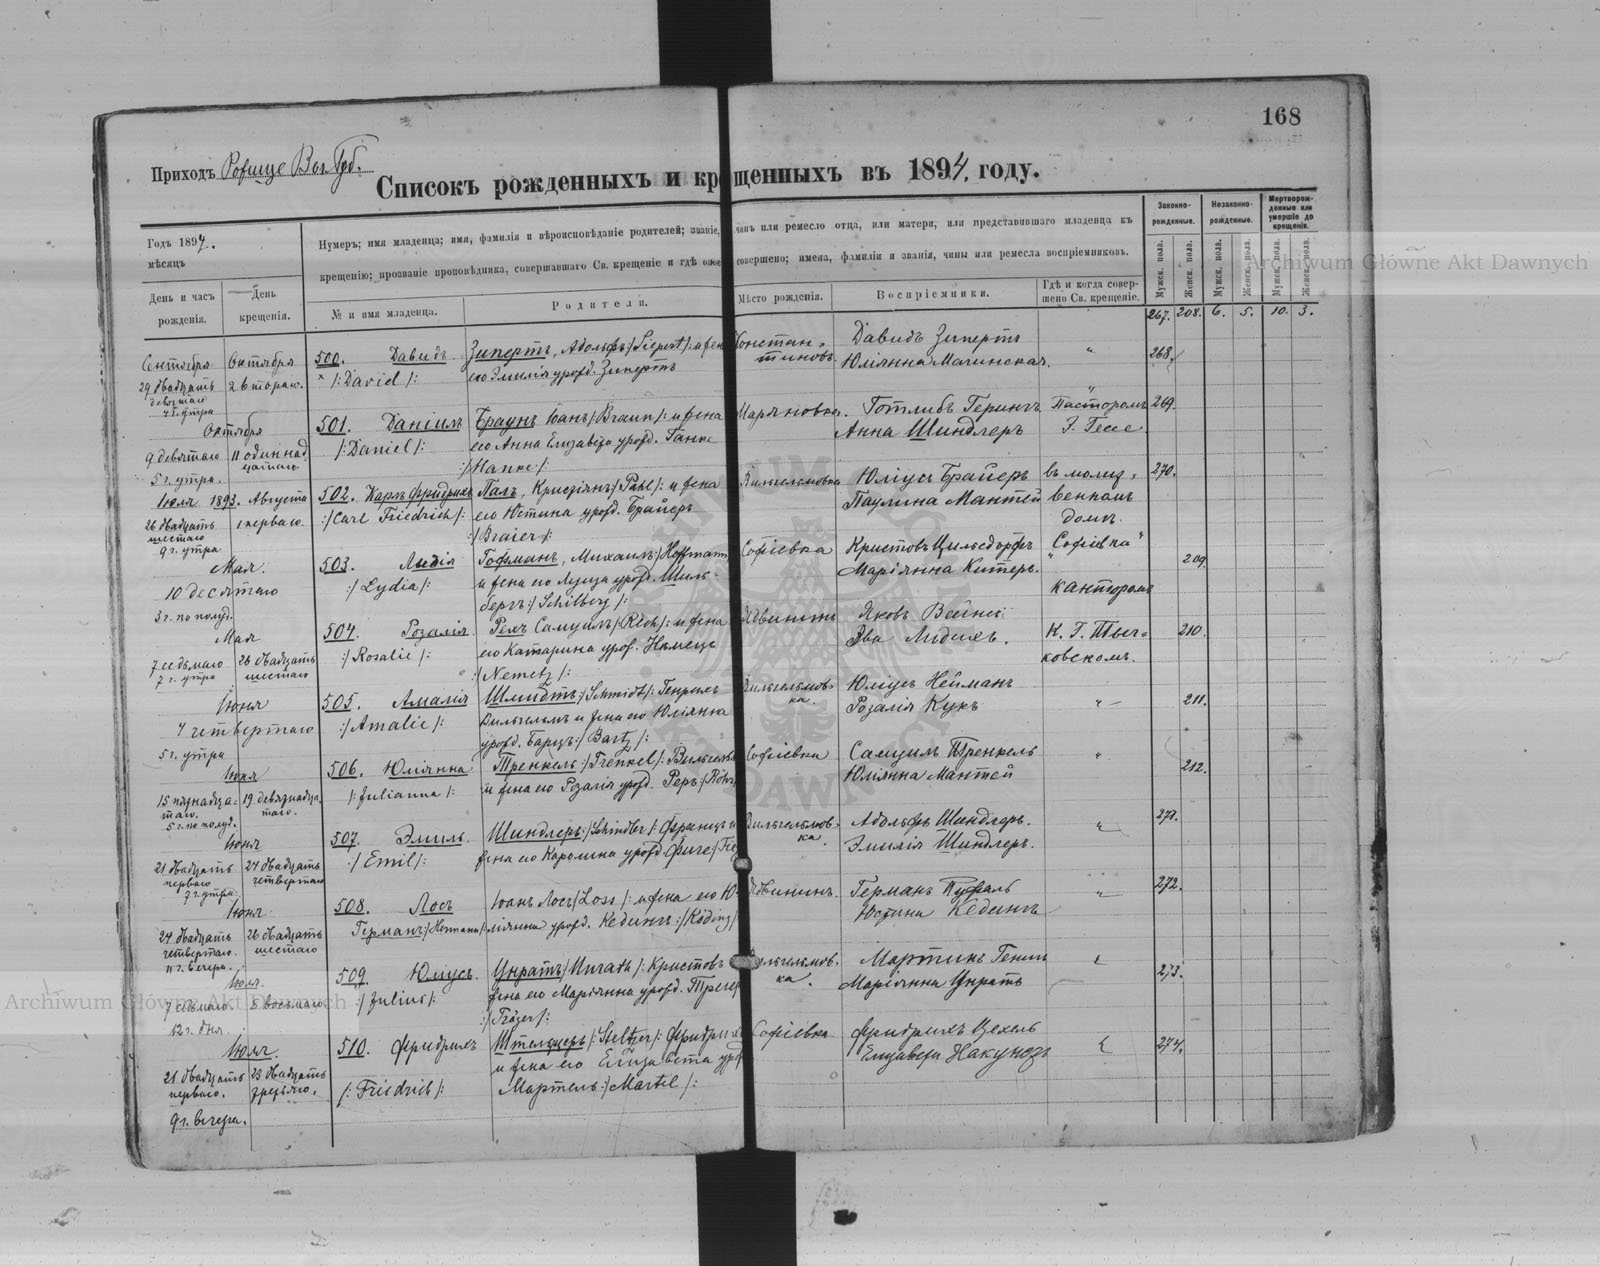 168
Приходъ Рожище Вол. Губ.
Списокъ рожденныхъ и крещенныхъ въ 1894 году.
Годъ 1894.
мѣсяцъ
День и часъ рожденія.
День крещенія.
Нумеръ; имя младенца; имя, фамилія и вѣроисповѣданіе родителей; званіе, чинъ или ремесло отца, или матери, или представившаго младенца къ
крещенію; прозваніе проповѣдника, совершавшаго Св. крещеніе и гдѣ оное совершено; имена, фамиліи и званія, чины или ремесла воспріемниковъ.
№ и имя младенца.
Родители.
Мѣсто рожденія.
Воспріемники.
Гдѣ и когда совершено Св. крещеніе.
Законнорожденные.
Незаконнорожденные.
Мертворожденные или умершіе до крещенія.
Мужск. пола.
Женск. пола.
Мужск. пола.
Женск. пола.
Мужск. пола.
Женск. пола.
267. 208. 6. 5. 10. 3.
Archiwum Główne Akt Dawnych
Сентября Октября 500. Давидъ Зипертъ, Адольфъ /:Siepert/: и жена Констан- Давидъ Зипертъ " 268.
29 двадцать девятаго 2 втораго. /:David/: его Эмилія урожд. Зипертъ тиновъ. Юліянна Малинская.
7 г. утра
Октября 501. Даніилъ Браунъ Іоанъ /:Braun/: и жена Маряновка. Готлибъ Герингъ Пасторомъ 269.
9 девятаго 11 одиннадцатаго /:Daniel/: его Анна Елизавета урожд. Ганке Анна Шиндлеръ Э. Гессе
5 г. утра. /:Hanke/:
Іюля 1893. Августа 502. Карлъ Фридрихъ Паль, Кристіянъ /:Pahl/: и жена Вильгельмовка Юліусъ Брайеръ въ молит- 270.
26 двадцать шестаго 1 перваго. /:Carl Friedrich/: его Юстина урожд. Брайеръ Паулина Мантей венномъ
9 г. утра /:Braier/: домѣ.
Мая. 503. Лидія Гофманъ, Михаилъ /:Hoffmann Софіевка Кристовъ Цильсдорфъ "Софіевка" 209.
10 десятаго /:Lydia/: и жена его Луиза урожд. Шиль- Маріянна Китеръ.
3 г. по полуд. бергъ /:Schilberg/: канторомъ
Мая 504. Розалія Рехъ Самуилъ /:Rech/: и жена Ядвининъ Яковъ Вейнсъ К. Г. Тыч- 210.
7 седьмаго 26 двадцать шестаго /:Rosalie/: его Катарина урож. Нѣмецъ Ева Лидихъ. ковскомъ.
7 г. утра /:Nemetz/:
Іюня 505. Амалія Шмидтъ /:Schmidt/: Генрихъ Вильгельмов- Юліусъ Нейманъ " 211.
4 четвертаго /:Amalie/: Вильгельмъ и жена его Юліянна ка. Розалія Кукъ
5 г. утра урожд. Барцъ /:Bartz/:
Іюня 506. Юліянна Тренкель /:Trenkel/: Вильгельмъ Софіевка Самуилъ Тренкель " 212.
15 пятнадцатаго. 19 девятнадцатаго. /:Julianna/: и жена его Розалія урожд. Реръ /:Röhr Юліянна Мантей
5 г. по полуд.
Іюня 507. Эмиль Шиндлеръ /:Schindler/: Францъ и Вильгельмов- Адольфъ Шиндлеръ. " 271.
21 двадцать перваго 24 двадцать четвертаго /:Emil/: жена его Каролина урожд. Фиге ка. Эмилія Шиндлеръ.
7 г. утра
Іюня 508. Лосъ Іоанъ Лосъ /:Loss/: и жена его Ю- Ядвининъ. Германъ Пуфаль " 272.
24 двадцать четвертаго. 26 двадцать шестаго Германъ /:Hermann/: ліянна урожд. Кедингъ /:Köding/ Юстина Кедингъ
11 г. вечера.
Іюля. 509. Юліусъ. Унратъ /:Unrath/: Кристовъ Вильгельмов- Мартинъ Генигъ " 273.
7 седьмаго. 8 восьмаго. /:Julius/: жена его Маріянна урожд. Трегер ка. Маріянна Унратъ
12 г. дня. /:Träger/:
Іюля. 510. Фридрихъ Штельцеръ /:Steltzer/: Фридрих Софіевка Фридрихъ Цехель " 274.
21 двадцать перваго. 23 двадцать третьяго. /:Friedrich/: и жена его Елизавета урож Елизавета Накунстъ
9 г. вечера. Мартель /:Martel/:
Archiwum Główne Akt Dawnych